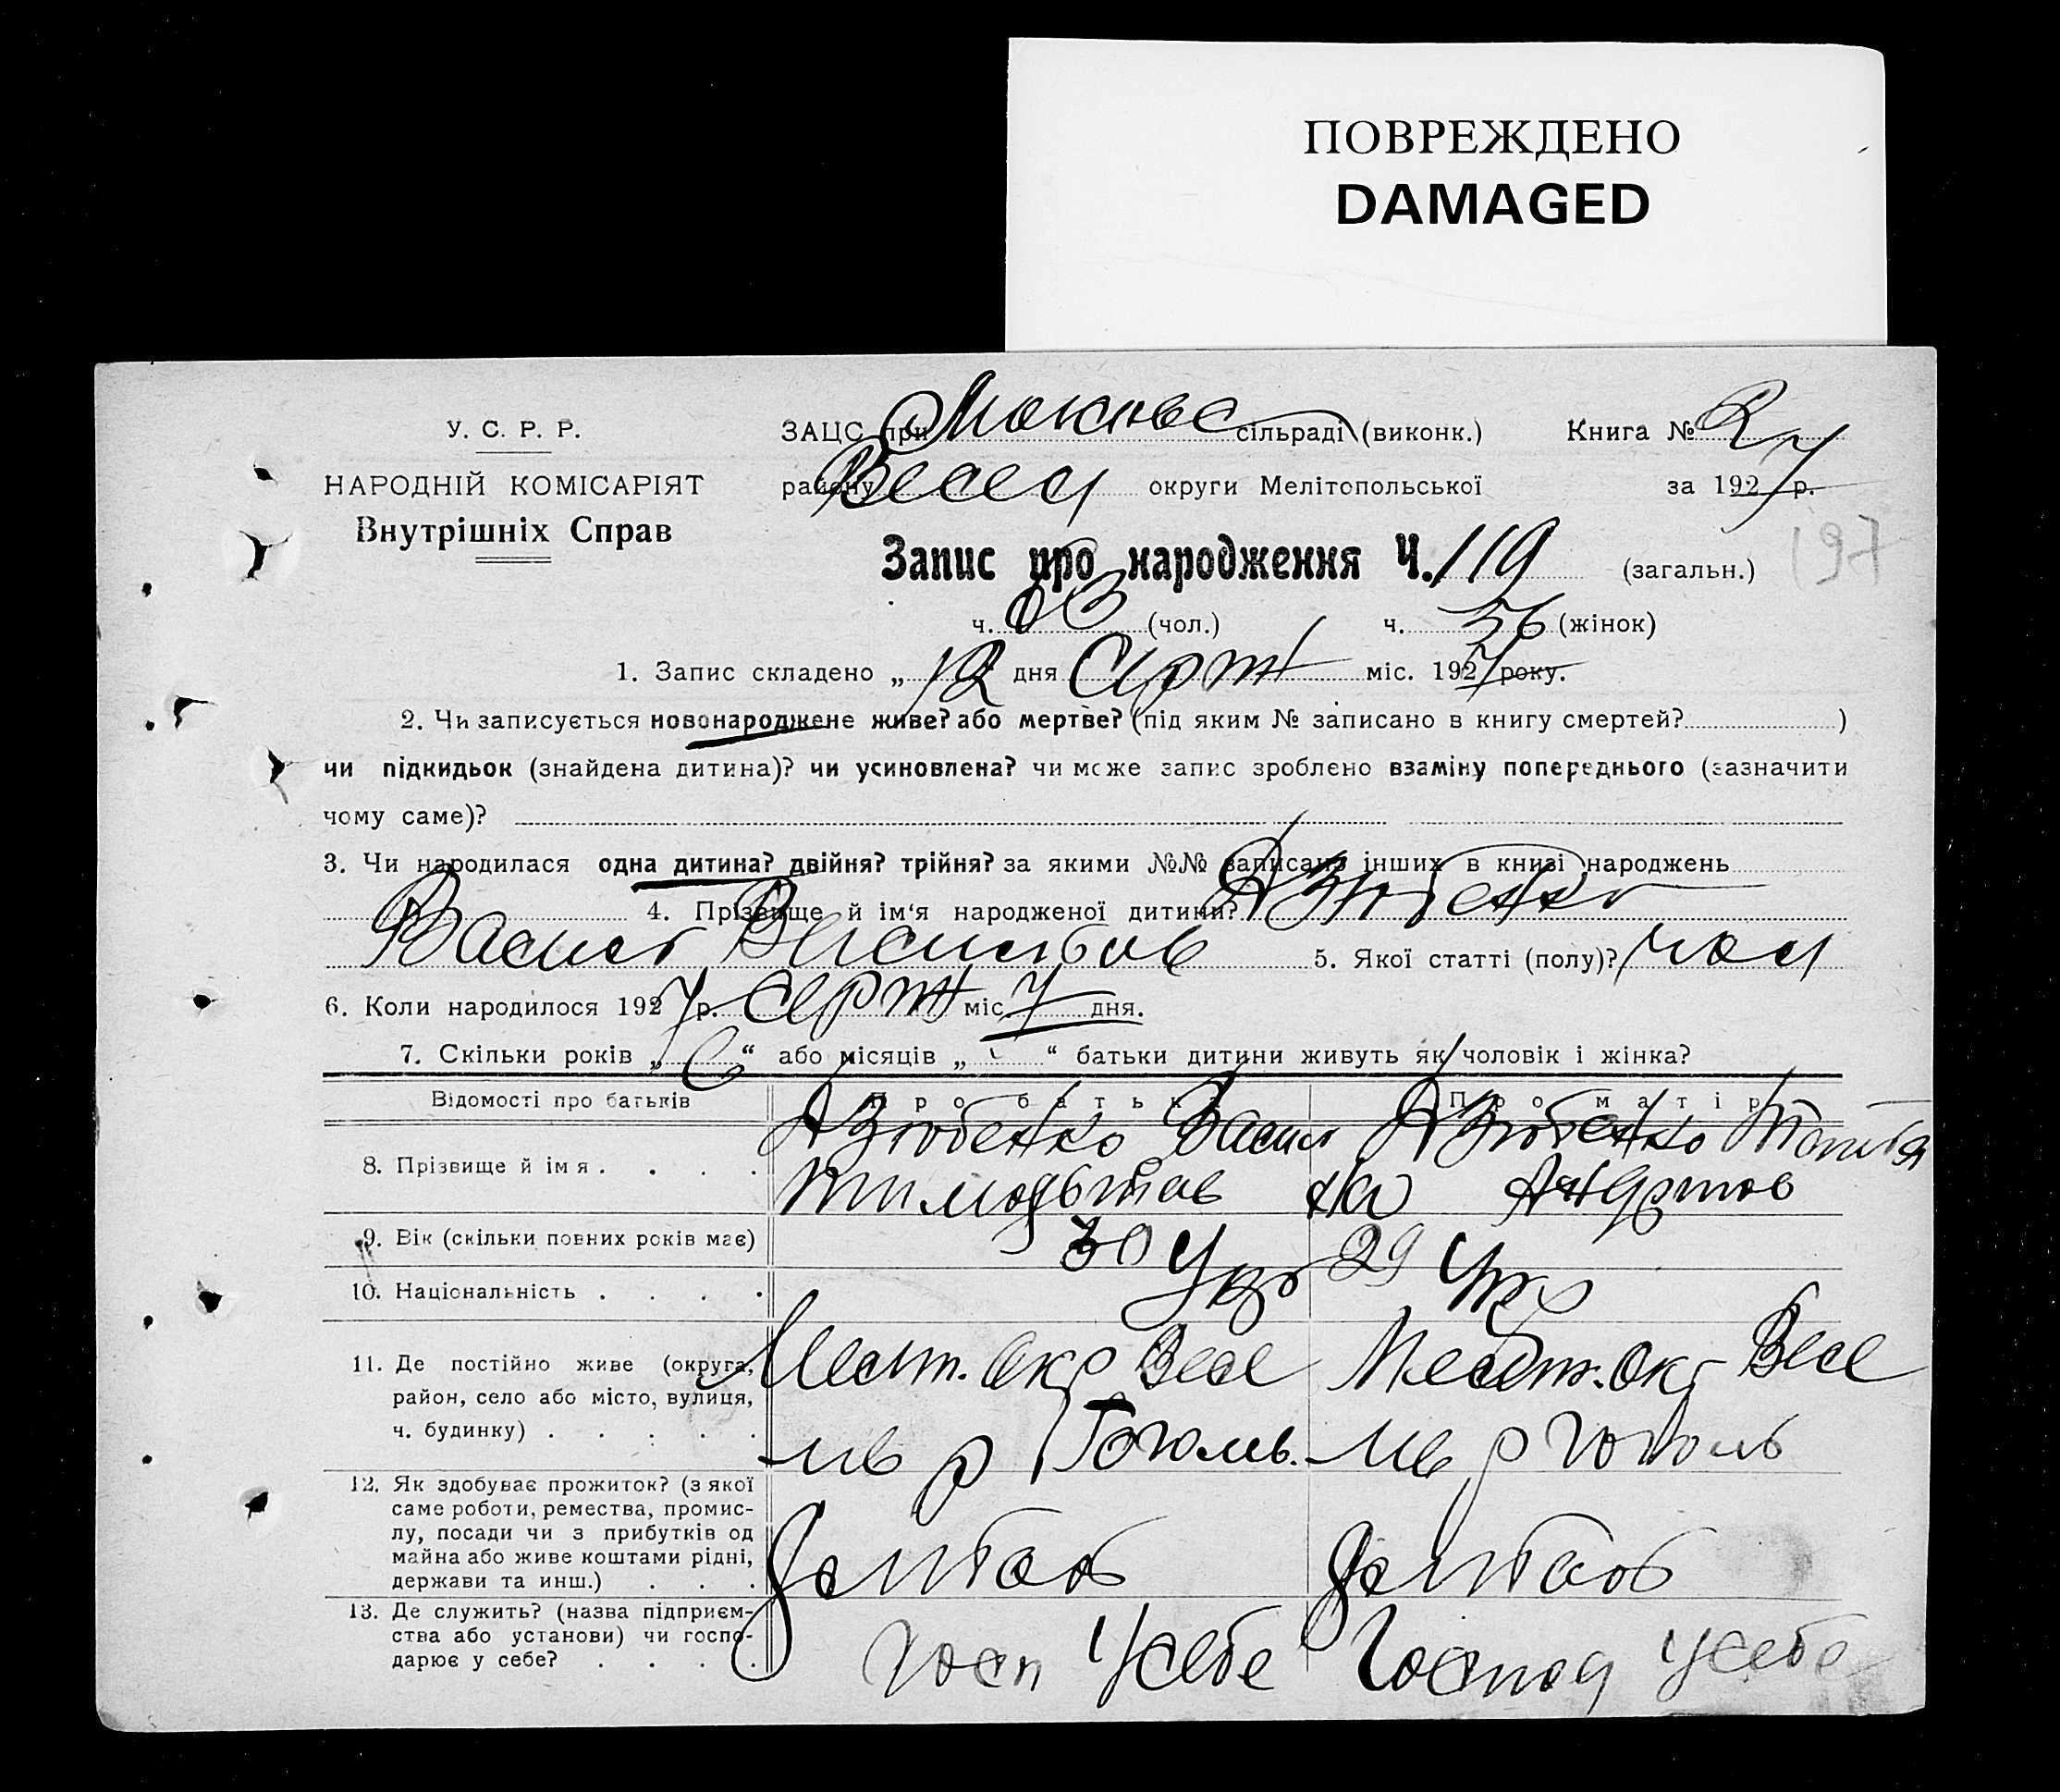 ПОВРЕЖДЕНО
DAMAGED
У. С. Р. Р.
НАРОДНІЙ КОМІСАРІЯТ
Внутрішніх Справ
ЗАЦС при сільраді (виконк.) Книга № 2
району Весел округи Мелітопольської за 1927 р.
Запис про народження Ч. 119 (загальн.) 197
ч. 63 (чол.) ч. 56 (жінок)
1. Запис складено „ 12 дня Серп міс. 1927 року.
2. Чи записується новонароджене живе? або мертве? (під яким № записано в книгу смертей? )
чи підкидьок (знайдена дитина)? чи усиновлена? чи може запис зроблено взаміну попереднього (зазначити
чому саме)?
3. Чи народилася одна дитина? двійня? трійня? за якими №№ записано інших в книзі народжень
4. Прізвище й ім‘я народженої дитини? Дзюбенко
Васил Васильов 5. Якої статті (полу)? чол
6. Коли народилося 1927 р. серп міс. 7 дня.
7. Скільки років „ 6 “ або місяців „ “ батьки дитини живуть як чоловік і жінка?
Відомості про батьків Про батька Про матір
8. Прізвище й імя . . . . Дзюбенко Васил Дзюбенко
9. Вік (скільки повних років має) 30 29
10. Національність . . . . Укр Укр
11. Де постійно живе (округа, район, село або місто, вулиця, ч. будинку) . . . . .
Меліт. Окр Весе Меліт. Окр Весе
лів р Гоголів. лів р Гоголь
12. Як здобуває прожиток? (з якої саме роботи, ремества, промислу, посади чи з прибутків од майна або живе коштами рідні, держави та инш.) . . .
13. Де служить? (назва підприємства або установи) чи господарює у себе? . . . .
Госп Усебе Господ Усебе